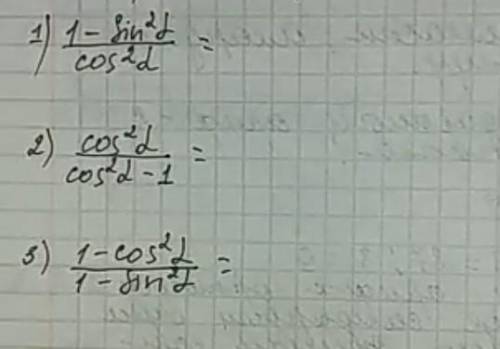 1) (1 - sin²α)/(cos²α) =
2) (cos²α)/(cos²α - 1) =
3) (1 - cos²α)/(1 - sin²α) =